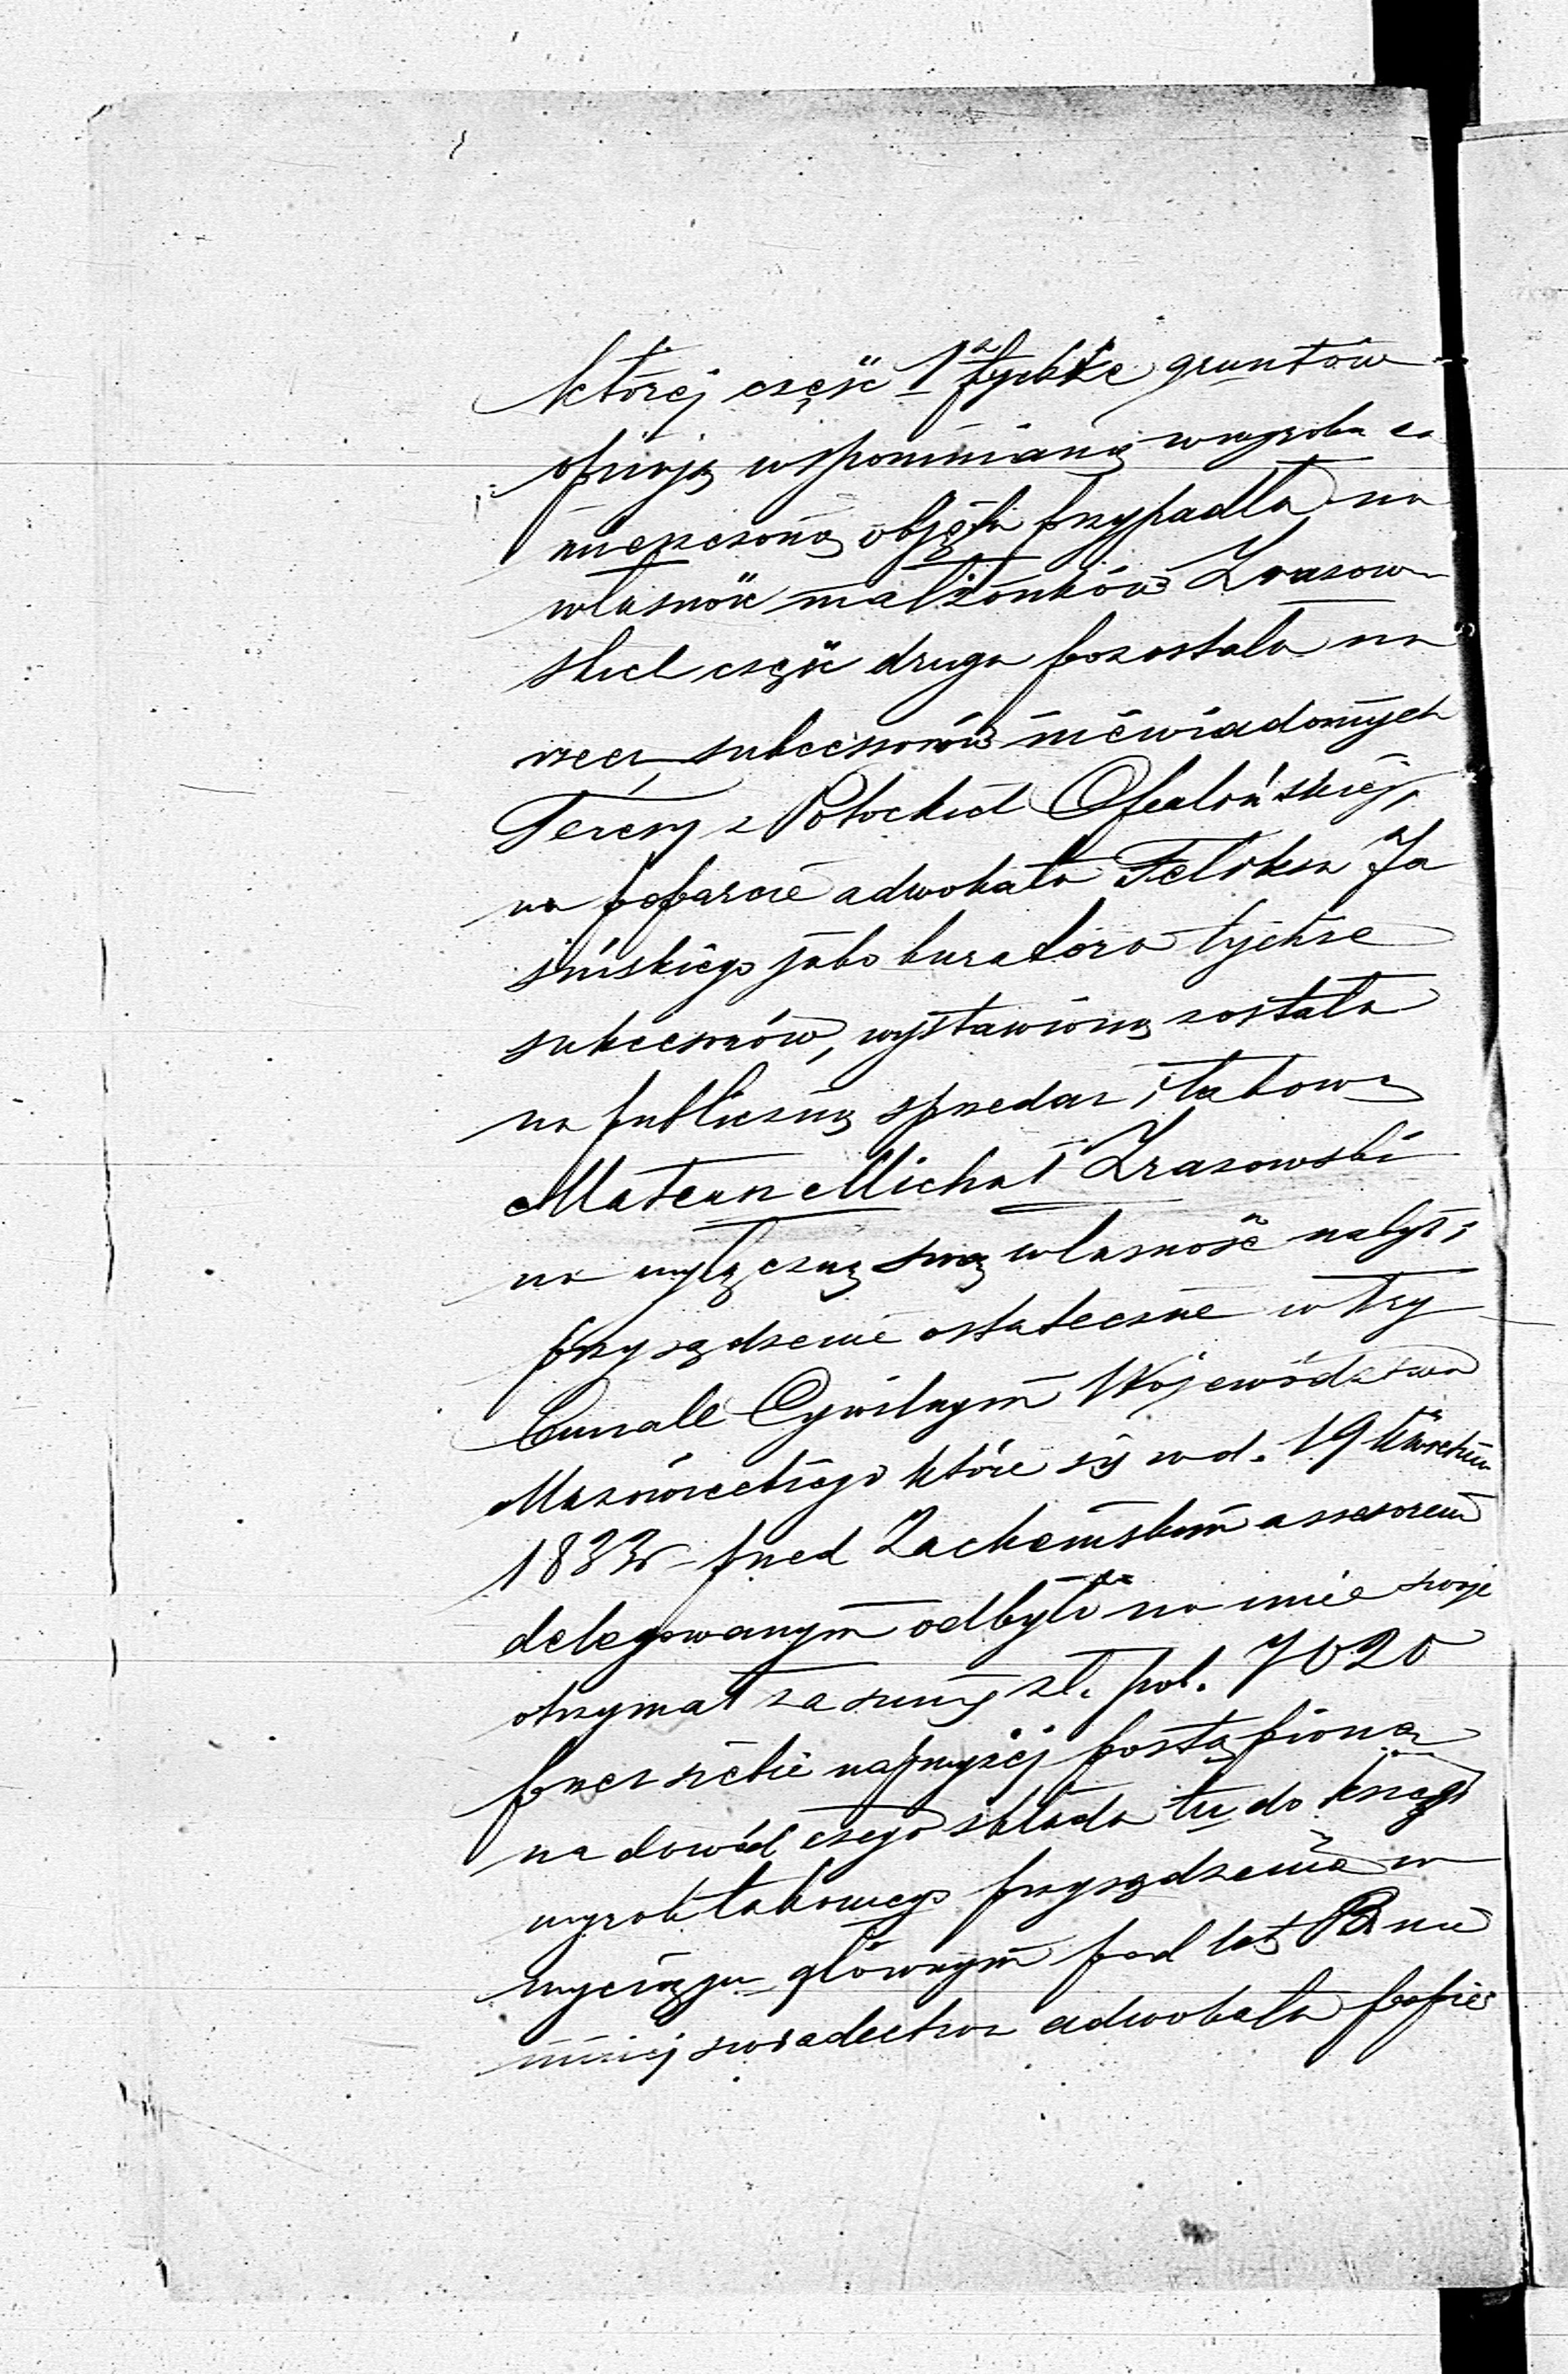 której część 1ª tychże gruntów
opinją wspomnianą w wyroku za
mieszczoną objęta przypadła na
własność małżonków Zrazow
skich część druga pozostała na
rzecz sukcessorów niewiadomych
Teresy z Potockich Ossolińskiej,
na poparcie adwokata Felixa Ja
sińskiego jako kuratora tychże
sukcesorów, wystawioną została
na publiczną sprzedaż i takową
Mateusz Michał Zrazowski
na wyłączną swą własność nabył i
przysądzenie ostateczne w Try
bunale Cywilnym Województwa
Mazowieckiego które się w d. 19 Kwietnia
1833 r przed Zachemskim assesorem
delegowanym odbyło na imie swoje
otrzymał za sumę zł. pol. 7020
przez siebie najwyżej postąpioną
na dowód czego składa tu do księgi
wyrok takowego przysądzenia w
wyciągu głównym pod lit. B nie
mniej świadectwo adwokata popie